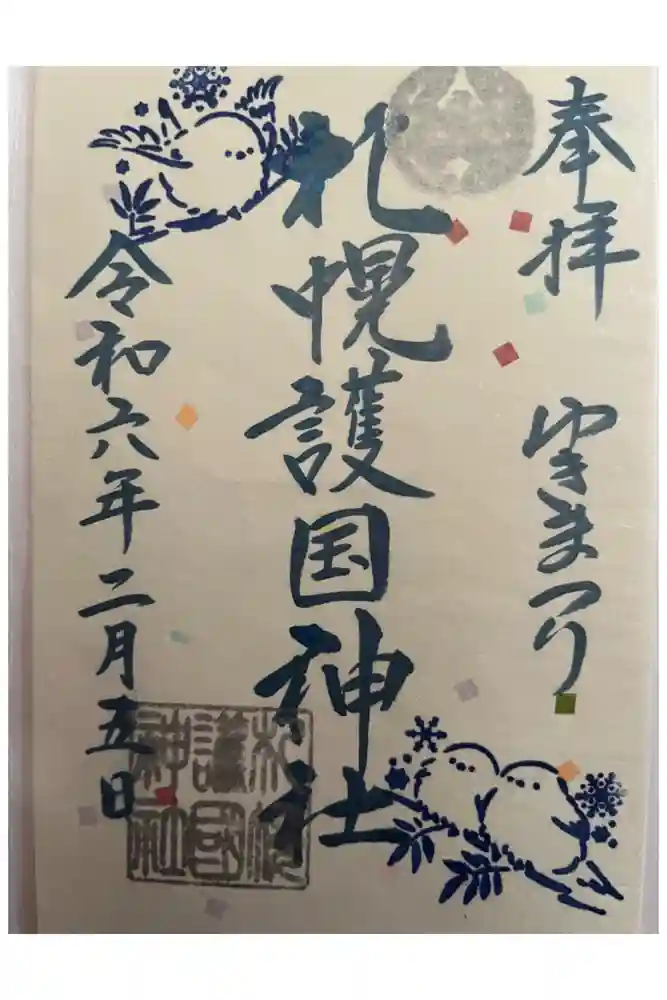 奉拝 ゆきまつり
札幌護国神社
令和六年二月五日
札幌
護國
神社